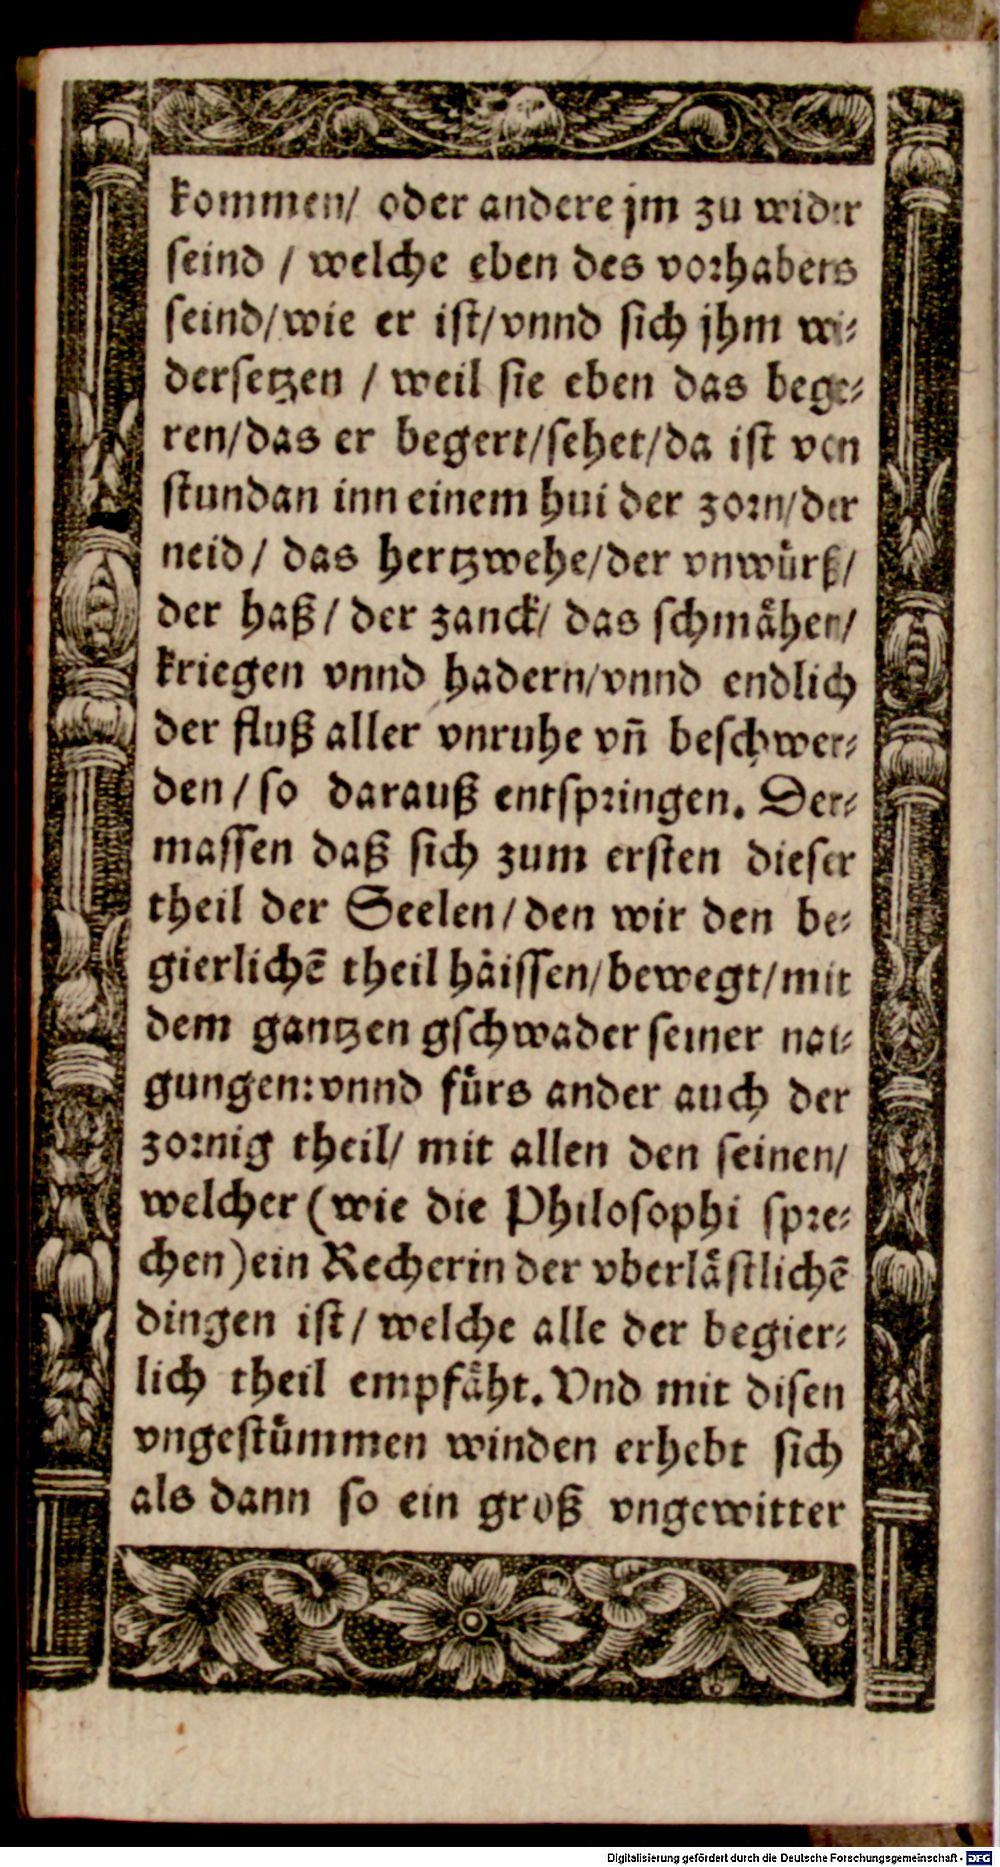 kommen/ oder andere jm zu wider
seind / welche eben des vorhabens
seind/wie er ist/vnnd sich jhm wi-
dersetzen / weil sie eben das bege-
ren/das er begert/sehet/da ist von
stundan inn einem hui der zorn/der
neid/ das hertzwehe/der vnwürß/
der haß/ der zanck/ das schmähen/
kriegen vnnd hadern/vnnd endlich
der fluß aller vnruhe vn̄ beschwer-
den/ so darauß entspringen. Der-
massen daß sich zum ersten dieser
theil der Seelen/den wir den be-
gierlichē theil häissen/bewegt/mit
dem gantzen gschwader seiner nai-
gungen:vnnd fürs ander auch der
zornig theil/ mit allen den seinen/
welcher (wie die Philosophi spre-
chen)ein Recherin der vberlästlichē
dingen ist/ welche alle der begier-
lich theil empfäht. Vnd mit disen
vngestümmen winden erhebt sich
als dann so ein groß vngewitter
Digitalisierung gefördert durch die Deutsche Forschungsgemeinschaft - DFG